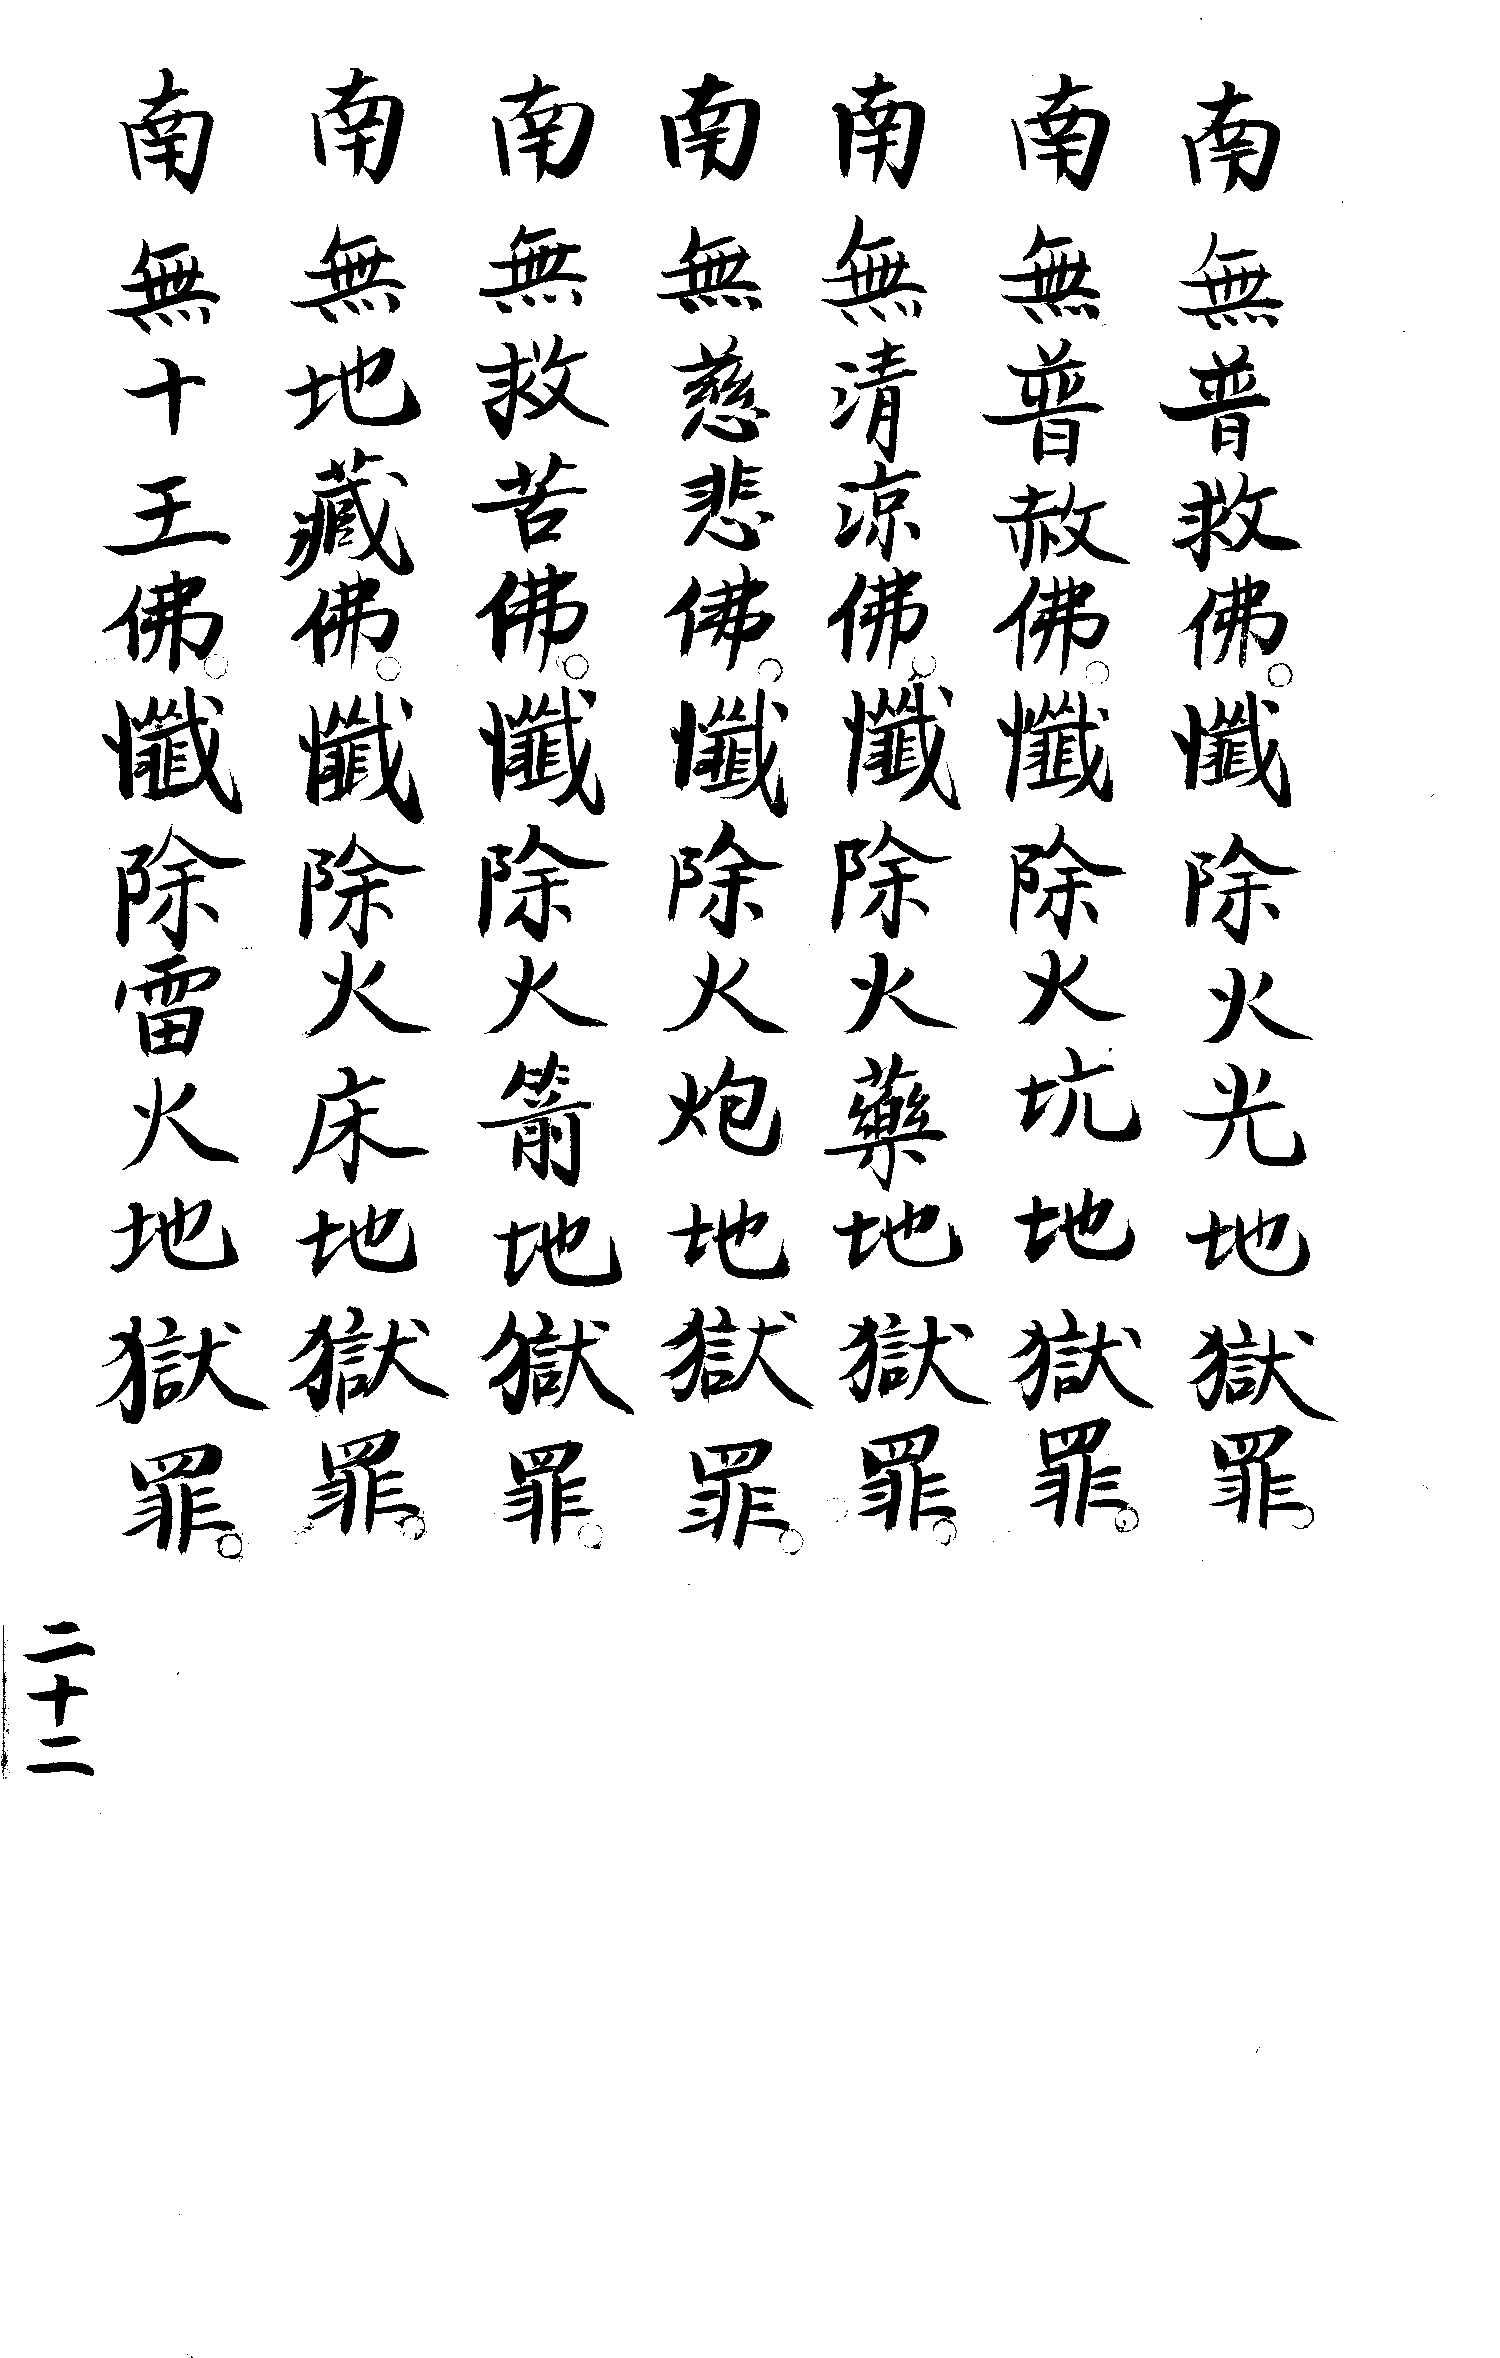 南無普救佛。懺除火光地獄罪。
南無普赦佛。懺除火坑地獄罪。
南無清凉佛。懺除火藥地獄罪。
南無慈悲佛。懺除火炮地獄罪。
南無救苦佛。懺除火箭地獄罪。
南無地藏佛。懺除火床地獄罪。
南無十王佛。懺除雷火地獄罪。
二十二